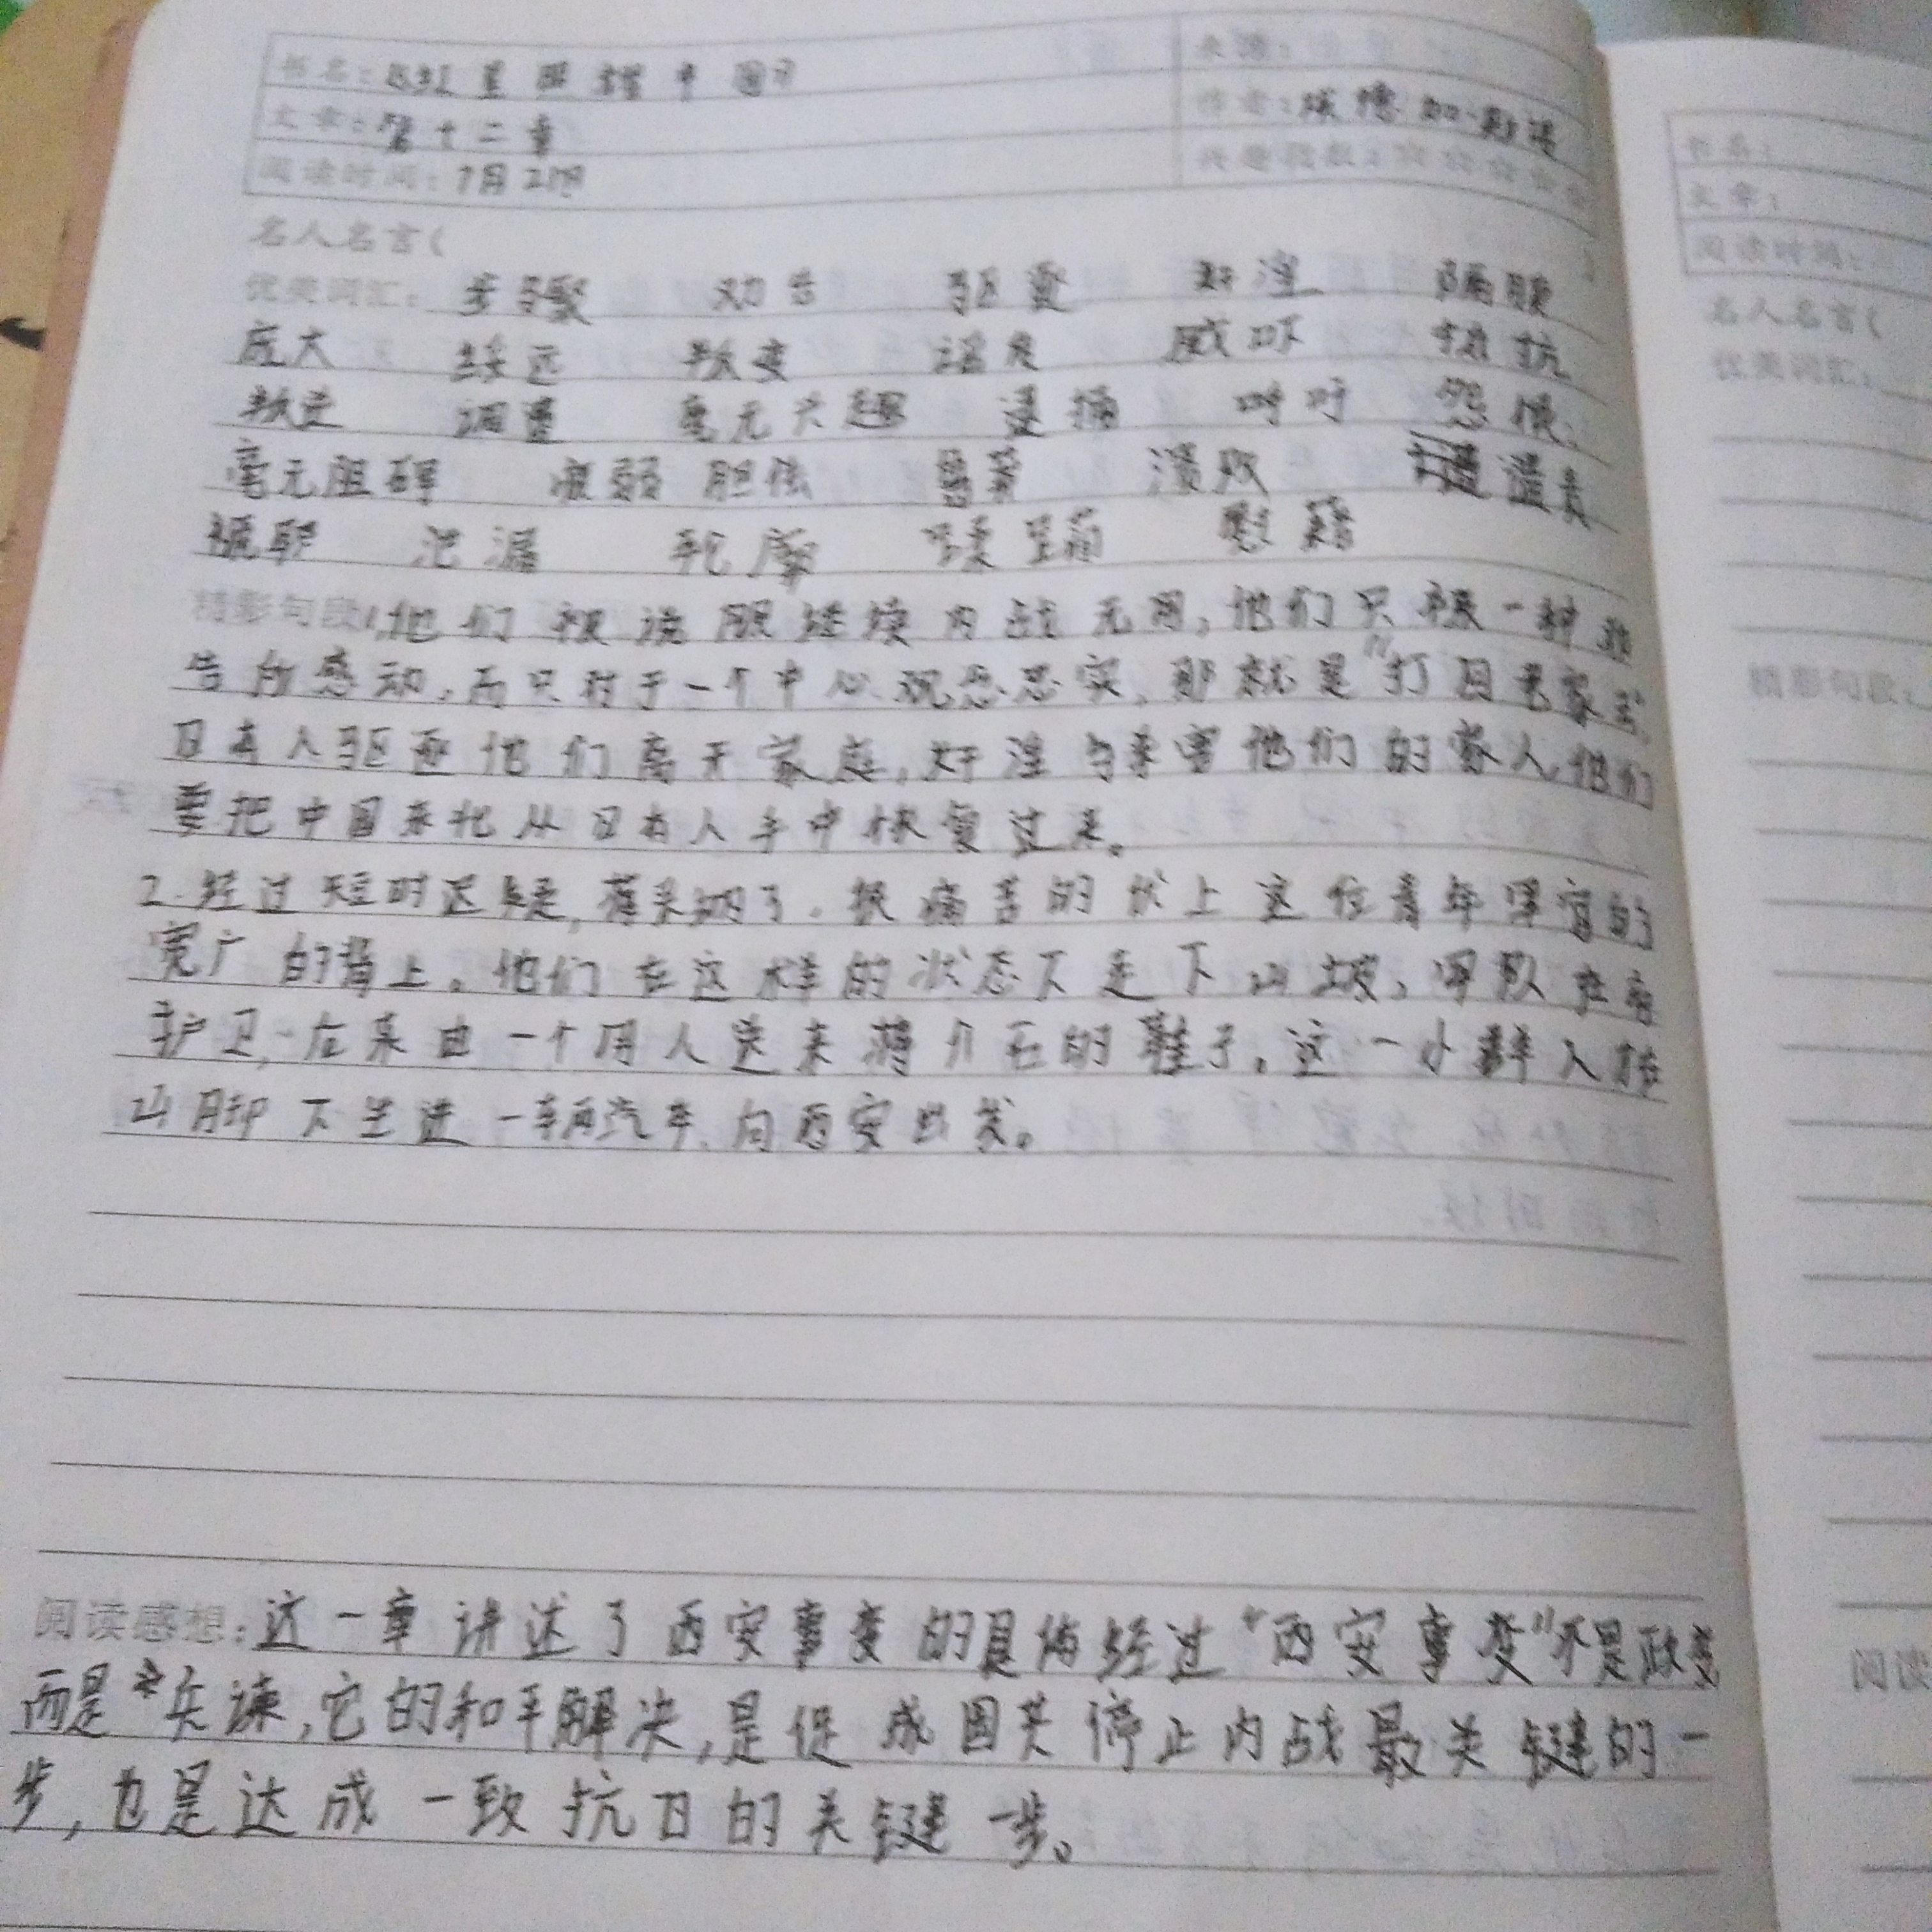 书名：红星照耀中国 来源：
文章：第十二章 作者：埃德加·斯诺
阅读时间：7月21日 兴趣指数：☆☆☆☆☆
名人名言(
优美词汇： 步骤 劝告 驱 奸淫
庞大 绥远 叛变 威吓 抵抗
叛逆 调遣 毫无兴趣 逮捕 呼吁 怨恨
毫元阻碍 衰弱 胆怯 普莱 溃败 谴责
泄漏 轮廓 慰藉
精彩句段：1.他们被说服继续内战无用，他们只被一种
告所感动，而只对于一个中心观念忠实，那就是“打回老家去”，
日本人驱逐他们离开家庭，奸淫与杀害他们的家人，他们
要把中国东北从日本人手中恢复过来。
2.经过短时迟疑，蒋采纳了。很痛苦的伏上这位青年军官的
宽广的背上。他们在这样的状态下走下山坡，军队在旁
护卫，后来由一个用人送来蒋介石的鞋子。这一小群人在
山脚下坐进一辆汽车、向西安出发。
阅读感想：这一章讲述了西安事变的具体经过“西安事变”不是政变
而是兵谏，它的和平解决，是促成国共停止内战最关键的一
步，也是达成一致抗日的关键一步。
书名：
文章：
阅读时间：
名人名言(
优美词汇：
精彩句段：
阅读